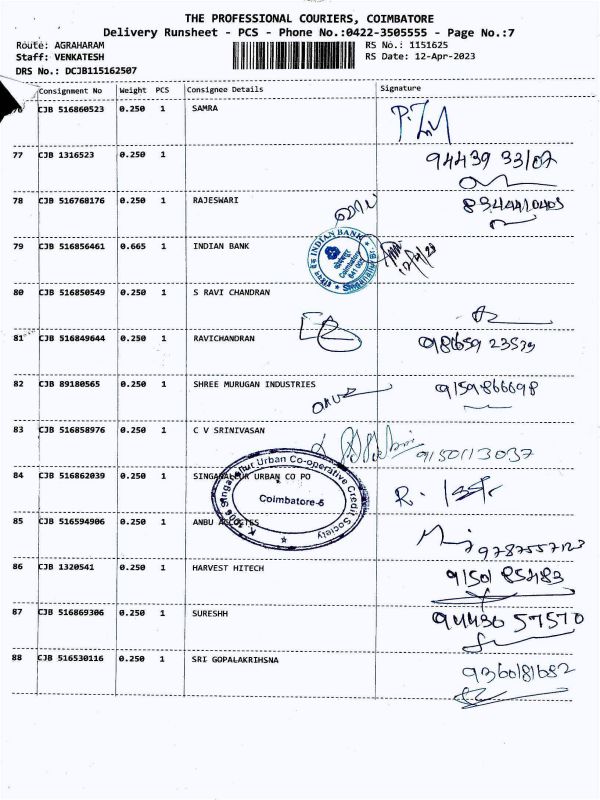 THE PROFESSIONAL COURIERS, COIMBATORE
Delivery Runsheet - PCS - Phone No.:0422-3505555 - Page No.:7
Route: AGRAHARAM RS No.: 1151625
Staff: VENKATESH RS Date: 12-Apr-2023
DRS No.: DCJB115162507
Consignment No Weight PCS Consignee Details Signature
CJB 516860523 0.250 1 SAMRA
77 CJB 1316523 0.250 1
78 CJB 516768176 0.250 1 RAJESWARI
79 CJB 516856461 0.665 1 INDIAN BANK
INDIAN BANK
Coimbatore
641 005
Singanallur Br.
12/4/23
80 CJB 516850549 0.250 1 S RAVI CHANDRAN
81 CJB 516849644 0.250 1 RAVICHANDRAN
82 CJB 89180565 0.250 1 SHREE MURUGAN INDUSTRIES 9159866698
83 CJB 516858976 0.250 1 C V SRINIVASAN 9150113037
84 CJB 516862039 0.250 1 SINGANALLUR URBAN CO PO
Singanallur Urban Co-operative Credit Society
Coimbatore-5
85 CJB 516594906 0.250 1 ANBU 9787557123
86 CJB 1320541 0.250 1 HARVEST HITECH 91501 85483
87 CJB 516869306 0.250 1 SURESHH 94430 57570
88 CJB 516530116 0.250 1 SRI GOPALAKRIHSNA 9360181682